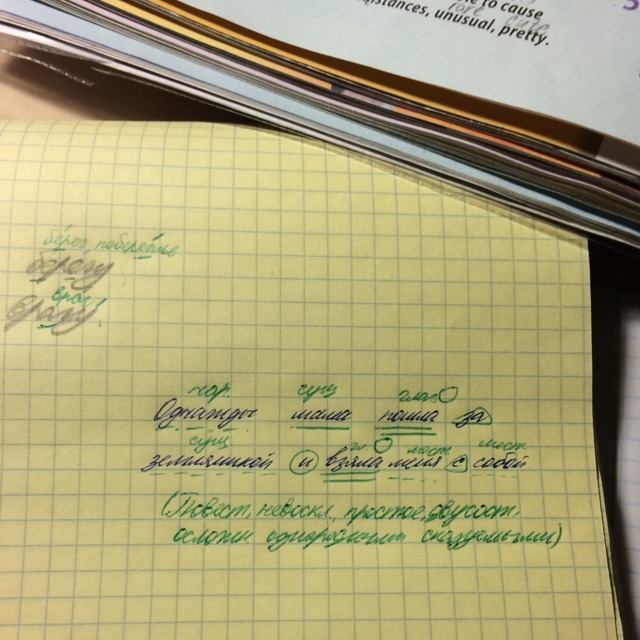 to cause
stances, unusual, pretty.
берег, побережье
берегу
враг
врагу!
нар. сущ глаг
Однажды мама пошла за
сущ гл. мест. мест.
земляникой и взяла меня с собой
(Повест., невоскл., простое, двусост.,
осложн однородными сказуемыми)